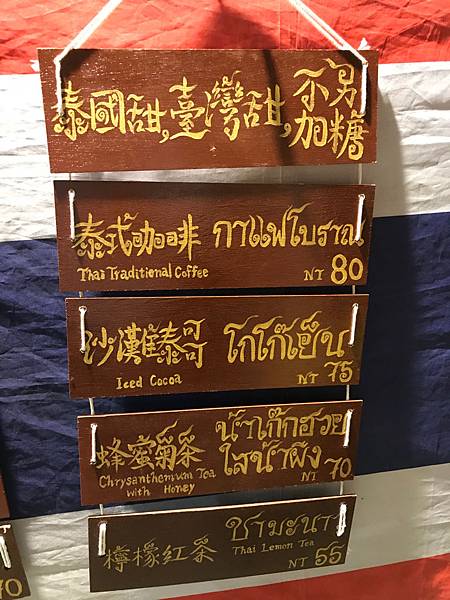 泰國甜,臺灣甜,不另加糖
泰式咖啡 กาแฟโบราณ
Thai Traditional Coffee NT 80
沙灘泰哥哥 โกโก๊เย็น
Iced Cocoa NT 75
蜂蜜菊茶 น้ำเก๊กฮวย
ใสน้ำผึง
Chrysanthemum Tea
with Honey NT 70
檸檬紅茶 ชามะนาว
Thai Lemon Tea
NT 55
70